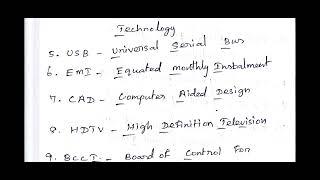 Technology
5. USB - Universal Serial Bus
6. EMI - Equated monthly Instalment
7. CAD - Computer Aided Design
8. HDTV - High Definition Television
9. BCCI - Board of Control For